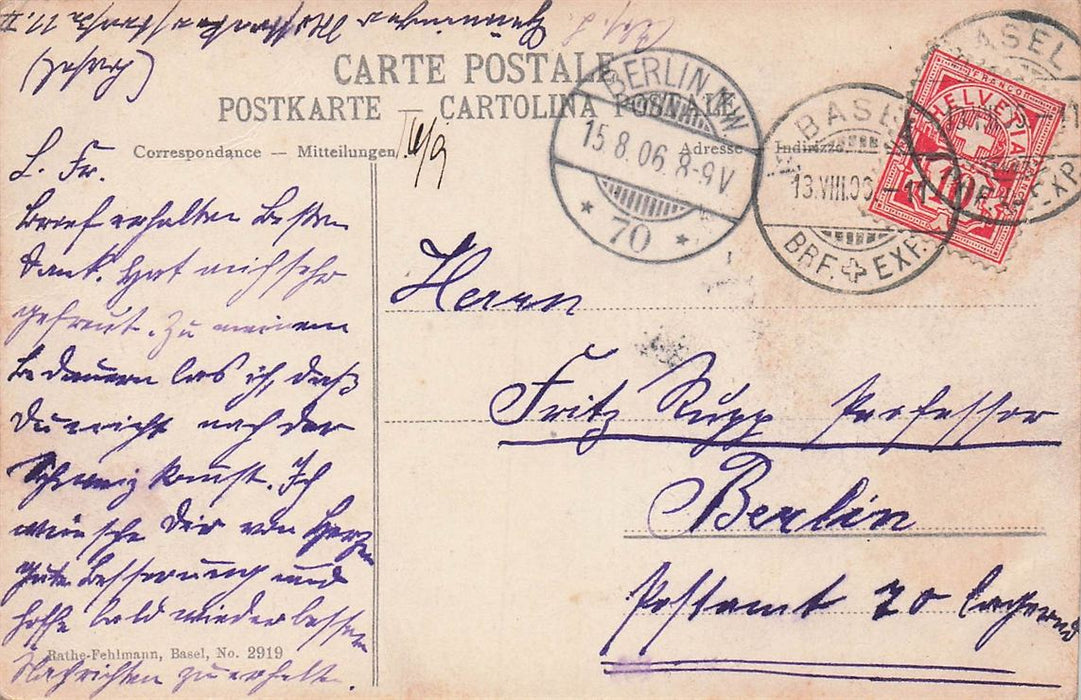 CARTE POSTALE
POSTKARTE — CARTOLINA POSTALE
Correspondance — Mitteilungen
Adresse — Indirizzo
BERLIN NW
15.8.06. 8-9V
* 70 *
BASEL
13.VIII.06.-11
BRF. EXP.
BASEL
EXP.
FRANCO
HELVETIA
10
L. Fr.
Brief erhalten Besten
Dank. Hat mich sehr
gefreut. Zu meinem
Bedauern las ich, daß
Du nicht nach der
Schweiz kommst. Ich
wünsche Dir von Herzen
gute Besserung und
hoffe bald wieder bessere
Nachrichten zu erhalten.
Herrn
Fritz Rupp Professor
Berlin
Postamt 70 lagernd
Rathe-Fehlmann, Basel, No. 2919